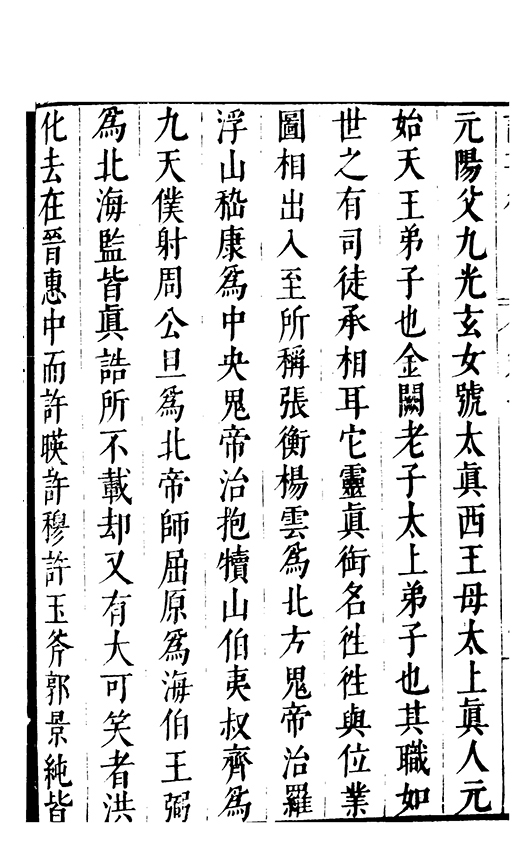 元陽父九光玄女號太眞西王母太上眞人元
始天王弟子也金闕老子太上弟子也其職如
世之有司徒承相耳它靈眞銜名徃徃與位業
圖相出入至所稱張衡楊雲爲北方鬼帝治羅
浮山嵇康爲中央鬼帝治抱犢山伯夷叔齊爲
九天僕射周公旦爲北帝師屈原爲海伯王弼
爲北海監皆眞誥所不載却又有大可笑者洪
化去在晉惠中而許暎許穆許玉斧郭景純皆